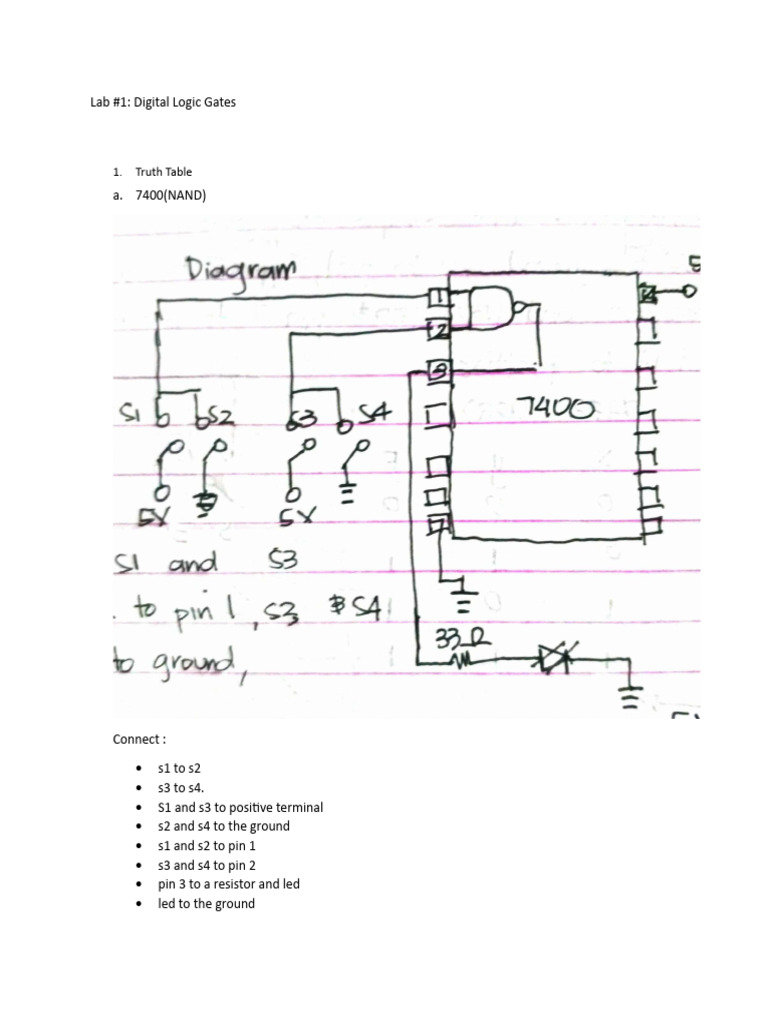 Lab #1: Digital Logic Gates
1. Truth Table
a. 7400(NAND)
Diagram
5
1
2
3
7400
S1
S2
S3
S4
5V
5V
7
S1 and S3
. to pin 1, S3 & S4
to ground,
33Ω
Connect :
• s1 to s2
• s3 to s4.
• S1 and s3 to positive terminal
• s2 and s4 to the ground
• s1 and s2 to pin 1
• s3 and s4 to pin 2
• pin 3 to a resistor and led
• led to the ground